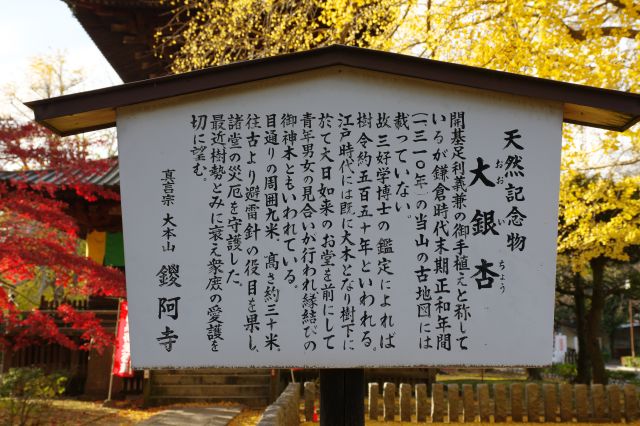 天然記念物
大銀杏
おおい
ちょう
開基足利義兼の御手植えと称して
いるが鎌倉時代末期正和年間
(一三一〇年)の当山の古地図には
載っていない。
故三好学博士の鑑定によれば
樹令約五百五十年といわれる。
江戸時代には既に大木となり樹下に
於て大日如来のお堂を前にして
青年男女の見合いが行われ縁結びの
御神木ともいわれている。
目通りの周囲九米、高さ約三十米、
往古より避雷針の役目を果し、
諸堂の災厄を守護した。
最近樹勢とみに衰え衆庶の愛護を
切に望む。
真言宗 大本山 鑁阿寺